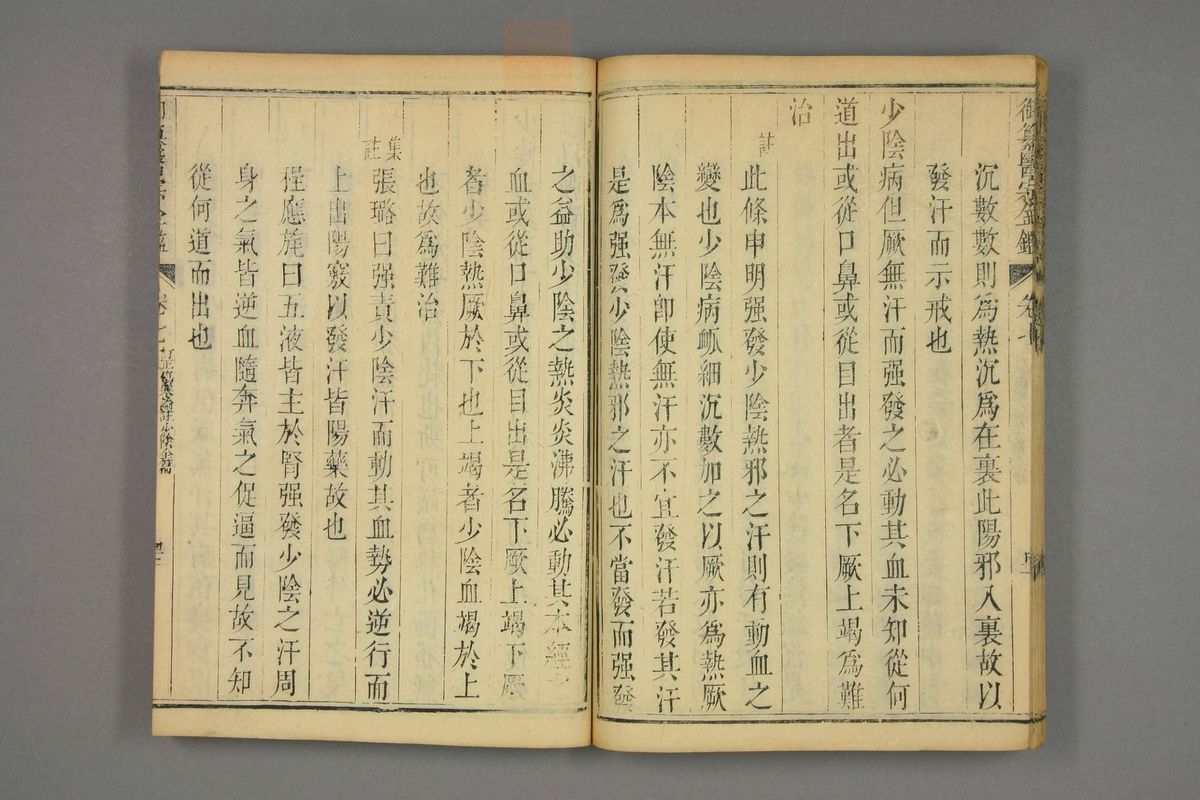 御纂醫宗金鑑 卷七
沉數數則為熱沉為在裏此陽邪入裏故以
發汗而示戒也
少陰病但厥無汗而强發之必動其血未知從何
道出或從口鼻或從目出者是名下厥上竭為難
治
註
此條申明强發少陰熱邪之汗則有動血之
變也少陰病脈細沉數加之以厥亦為熱厥
陰本無汗卽使無汗亦不宜發汗若發其汗
是為强發少陰熱邪之汗也不當發而强發
之益助少陰之熱炎炎沸騰必動其本經之
血或從口鼻或從目出是名下厥上竭下厥
者少陰熱厥於下也上竭者少陰血竭於上
也故為難治
集註
張璐曰强責少陰汗而動其血勢必逆行而
上出陽竅以發汗皆陽藥故也
程應旄曰五液皆主於腎强發少陰之汗周
身之氣皆逆血隨奔氣之促逼而見故不知
從何道而出也
卷七